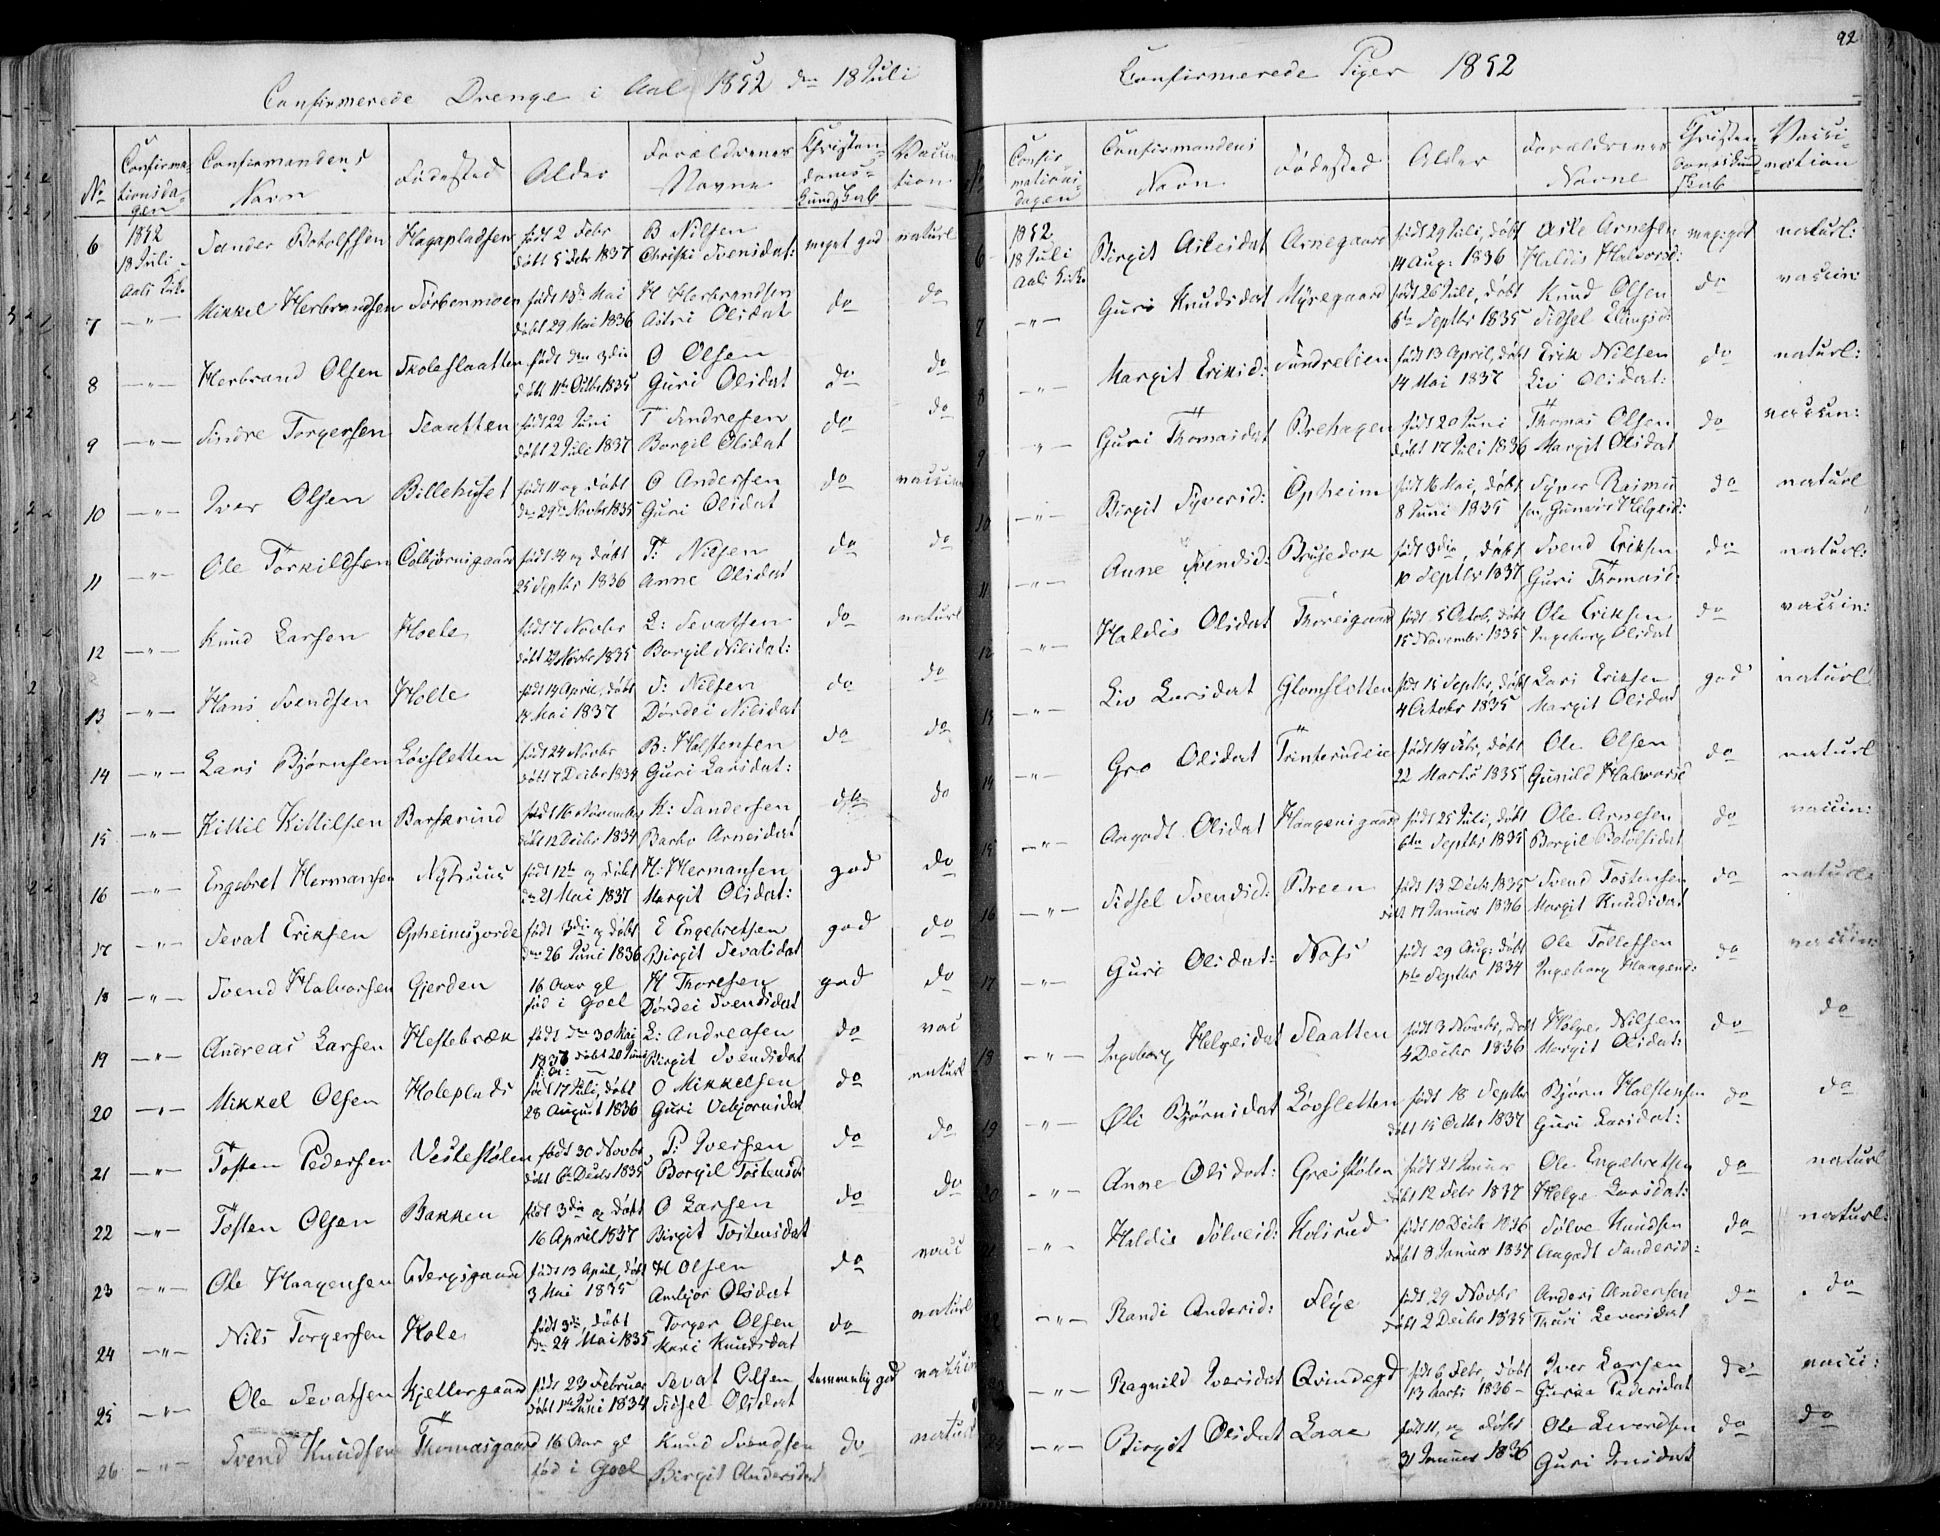 Confirmerede Drenge i Aal 1852 den 18 Juli
No
Confirmationsdagen
Confirmandens Navn
Fødested
Alder
Forældrenes Navne
Christendomskundskab
Vaccination
6 1852 18 Juli Aals Kirke Sander Botolfsen Hagapladsen født 2 Febr døbt 5 Febr 1837 B Nilsen Christi Svensdat: meget god naturl
7 —"— Mikkel Herbrandsen Torbenmoen født 13de Mai døbt 29 Mai 1836 H Herbrandsen Astri Olsdat do do
8 —"— Herbrand Olsen Skoleslaatten født den 3die døbt 11te Octbr 1835 O Olsen Guri Olsdat do do
9 —"— Sindre Torgersen Slaatten født 22 Juni døbt 2 Juli 1837 T Sindresen Borgil Olsdat do do
10 —"— Iver Olsen Billehuset født 11 og døbt den 29de Novbr 1835 O Andersen Guri Olsdat do vaccin
11 —"— Ole Torkildsen Colbjørnsgaard født 14 og døbt 25 Septbr 1836 T: Nilsen Anne Olsdat do do
12 —"— Knud Larsen Hoele født 7 Novbr døbt 29 Novbr 1835 L: Sevatsen Borgil Nilsdat: do naturl
13 —"— Hans Svendsen Holte født 14 April, døbt 14 Mai 1837 S: Nilsen Dordei Nilsdat do do
14 —"— Lars Bjørnsen Løvsletten født 24 Novbr døbt 7 Decbr 1834 B: Halstensen Guri Larsdat: do do
15 —"— Kittil Kittilsen Barskrind født 16 November døbt 12 Decbr 1834 K: Sandersen Barbr Arnesdat do do
16 —"— Engebret Hermansen Nyhuus født 12te og døbt den 21 Mai 1837 H: Hermansen Margit Olsdat: god do
17 —"— Sevat Eriksen Opheimsgorde født 3die og døbt den 26 Juni 1836 E Engebretsen Birgit Sevatsdat god do
18 —"— Svend Halvorsen Gjerden 16 Aar gl fød i Goel H Thoresen Dordei Svendsdat god do
19 —"— Andreas Larsen Hestebræk født den 30 Mai 1836 døbt 20 Juni L: Andreasen Birgit Svendsdat do vac
20 —"— Mikkel Olsen Holeplads fød 17 Juli, døbt 28 August 1836 O Mikkelsen Guri Vebjørnsdat do naturl
21 —"— Tosten Pedersen Vestestølen født 30 Novbr, døbt 6te Decbr 1835 P: Iversen Borgil Tostensd: do do
22 —"— Tosten Olsen Bakken fød 3die og døbt 16 April 1837 O Larsen Birgit Tostensdat do do
23 —"— Ole Haagensen Bergsgaard født 13 April, døbt 3 Mai 1835 H Olsen Ambjør Olsdat do vacc
24 —"— Nils Torgersen Hole født 3die, døbt den 24 Mai 1835 Torger Olsen Kari Knudsdat do naturl
25 —"— Ole Sevatsen Kjellergaard født 23 Februar døbt 1ste Juni 1834 Sevat Olsen Sidsel Olsdat temmelig god vaccin
26 —"— Svend Knudsen Thomasgaard 16 Aar gl fød i Goel Knud Svendsen Birgit Andersdat do naturl
Confirmerede Piger 1852
92
No
Confirmationsdagen
Confirmandens Navn
Fødested
Alder
Forældrenes Navne
Christendomskundskab
Vaccination
6 1852 18 Juli Aals Kirke Birgit Aslesdat Arnegaard født 29 Juli, døbt 14 Aug: 1836 Asle Arnesen Haldis Halvorsd: meg: god naturl:
7 —"— Guri Knudsdat Myregaard født 26 Juli, døbt 6te Septbr 1835 Knud Olsen Sidsel Ellingsd: do vaccin:
8 —"— Margit Eriksd: Sundrelien født 13 April, døbt 14 Mai 1837 Erik Nilsen Liv Olsdat: do naturl:
9 —"— Guri Thomasdat Brehagen født 20 Juni døbt 17 Juli 1836 Thomas Olsen Margit Olsdat do vaccin:
10 —"— Birgit Syversd: Opheim født 16 Mai, døbt 8 Juni 1835 Syver Rasmussen, Gunvor Helgesd: do naturl
11 —"— Anne Svendsd: Brusedok født 3die, døbt 10 Septbr 1837 Svend Eriksen Guri Thomasd: do naturl:
12 —"— Haldis Olsdat Thoresgaard født 5 Octob, døbt 15 November 1835 Ole Eriksen Ingeborg Olsdat do vaccin:
13 —"— Liv Larsdat Glomsletten fød 15 Septbr, døbt 4 Octobr 1835 Lars Eriksen Margit Olsdat god naturl
14 —"— Gro Olsdat Trinterudeie født 14 Febr, døbt 22 Marts 1835 Ole Olsen Gunild Halvorsd do naturl
15 —"— Aagodt Olsdat Haagensgaard født 25 Juli, døbt 6te Septbr 1835 Ole Arnesen Borgil Botolfsdat do vaccin:
16 —"— Sidsel Svendsd: Breen født 13 Decbr 1835 døbt 17 Januar 1836 Svend Tostensen Margit Knudsdat do naturl:
17 —"— Guri Olsdat: Noss født 29 Aug: døbt Septbr 1834 Ole Tollefsen Ingeborg Haagensd: do vaccin:
18 —"— Ingeborg Helgesdat Slaatten født 3 Novbr, døbt 4 Decbr 1836 Helge Nilsen Margit Olsdat: do do
19 —"— Øli Bjørnsdat Løvsletten født 18 Septbr døbt 15 Octbr 1837 Bjørn Halstensen Guri Larsdat: do do
20 —"— Anne Olsdat: Græsstølen født 21 Januar døbt 12 Febr 1837 Ole Engebretsen Helge Larsdat: do naturl
21 —"— Haldis Sølvesd: Kolsrud født 10 Decbr 1836 døbt 8 Januar 1837 Sølve Knudsen Aagodt Sandersd: do naturl:
—"— Randi Andersd: Flye født 29 Novbr døbt 2 Decbr 1835 Anders Andersen Thuri Leversdat do do
—"— Ragnild Iversdat Qvindegd født 6 Febr, døbt 13 Marts 1836 – Iver Larsen Guroe Pedersdat do vacci:
—"— Birgit Olsdat Laae født 11, og døbt 31 Januar 1836 Ole Levordsen Guri Jonsdat do do